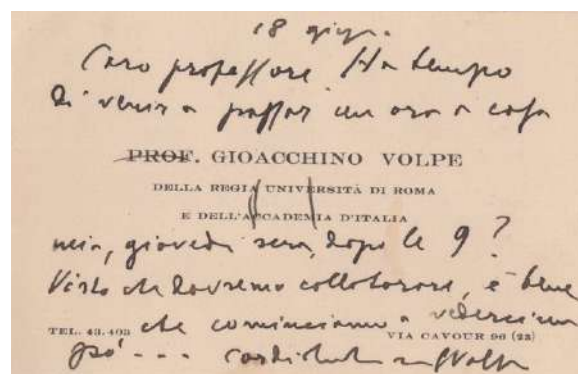 18 giug.
Caro professore. Ha tempo
di venir a passar un ora a casa
PROF. GIOACCHINO VOLPE
DELLA REGIA UNIVERSITÀ DI ROMA
E DELL'ACCADEMIA D'ITALIA
mia, giovedì sera, dopo le 9?
Visto che dovremo collaborare, è bene
che cominciamo a vederci un
TEL. 43.403
VIA CAVOUR 96 (23)
pó - - - Volpe